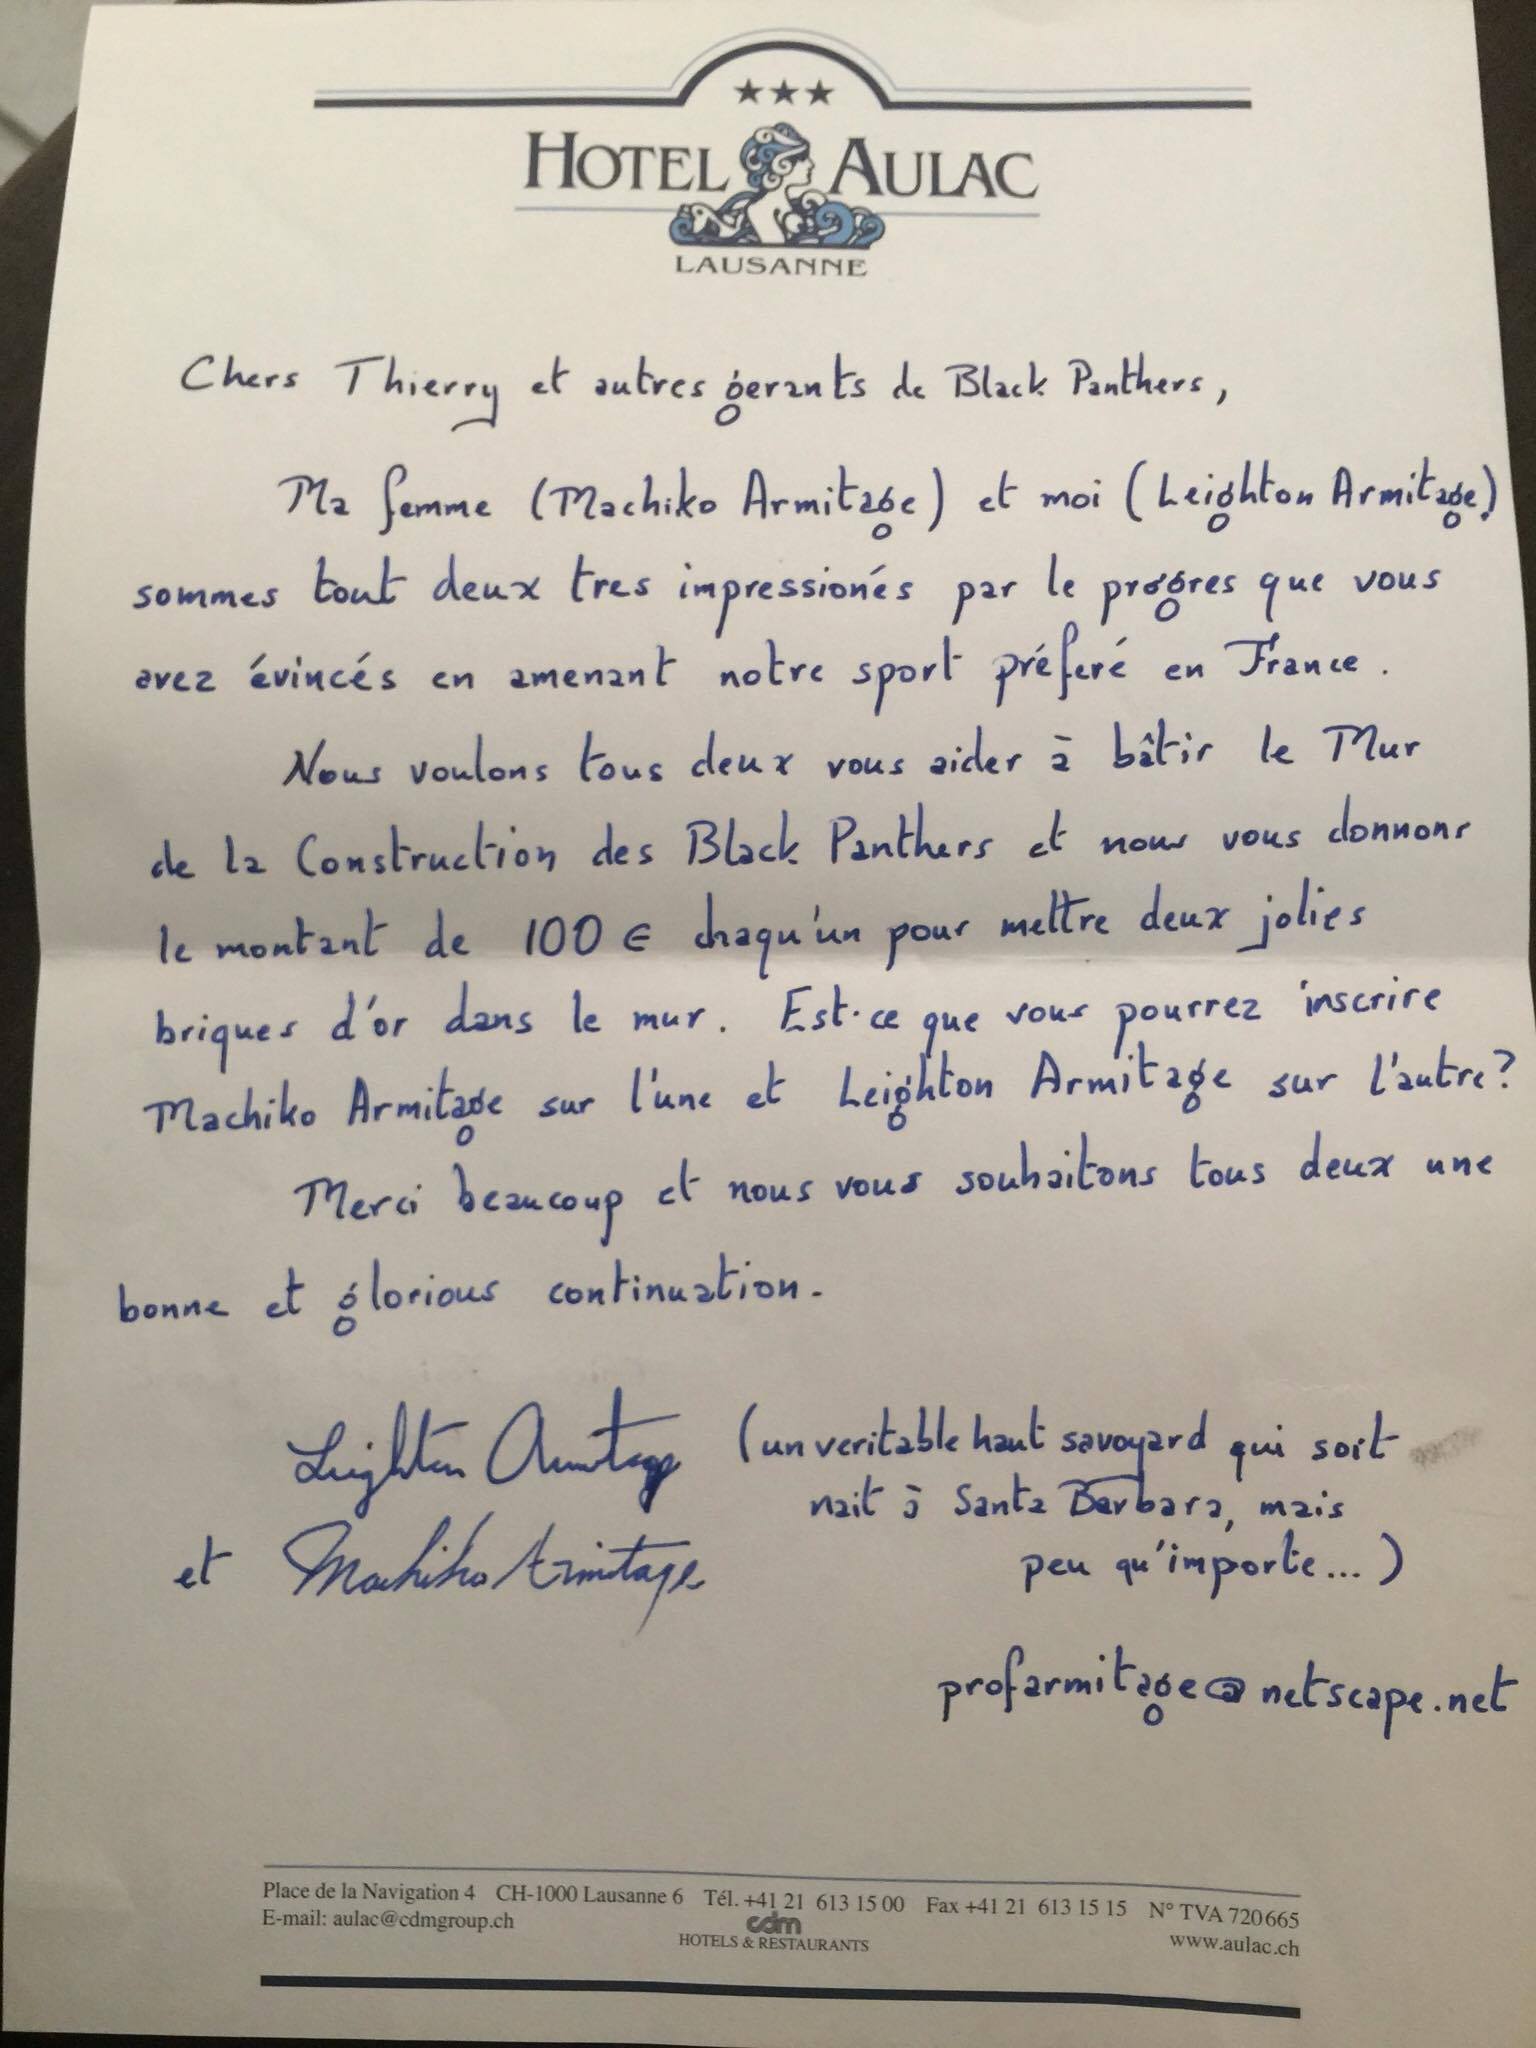 ★★★
HOTEL AULAC
LAUSANNE
Chers Thierry et autres gerants de Black Panthers,
Ma femme (Machiko Armitage) et moi (Leighton Armitage)
sommes tout deux tres impressionés par le progres que vous
avez évincés en amenant notre sport préferé en France.
Nous voulons tous deux vous aider à bâtir le Mur
de la Construction des Black Panthers et nous vous donnons
le montant de 100 € chaqu'un pour mettre deux jolies
briques d'or dans le mur. Est-ce que vous pourrez inscrire
Machiko Armitage sur l'une et Leighton Armitage sur l'autre?
Merci beaucoup et nous vous souhaitons tous deux une
bonne et glorious continuation.
Leighton Armitage (un veritable haut savoyard qui soit
nait à Santa Barbara, mais
et Machiko Armitage peu qu'importe...)
profarmitage@netscape.net
Place de la Navigation 4 CH-1000 Lausanne 6 Tél. +41 21 613 15 00 Fax +41 21 613 15 15 N° TVA 720 665
E-mail: aulac@cdmgroup.ch cdm www.aulac.ch
HOTELS & RESTAURANTS